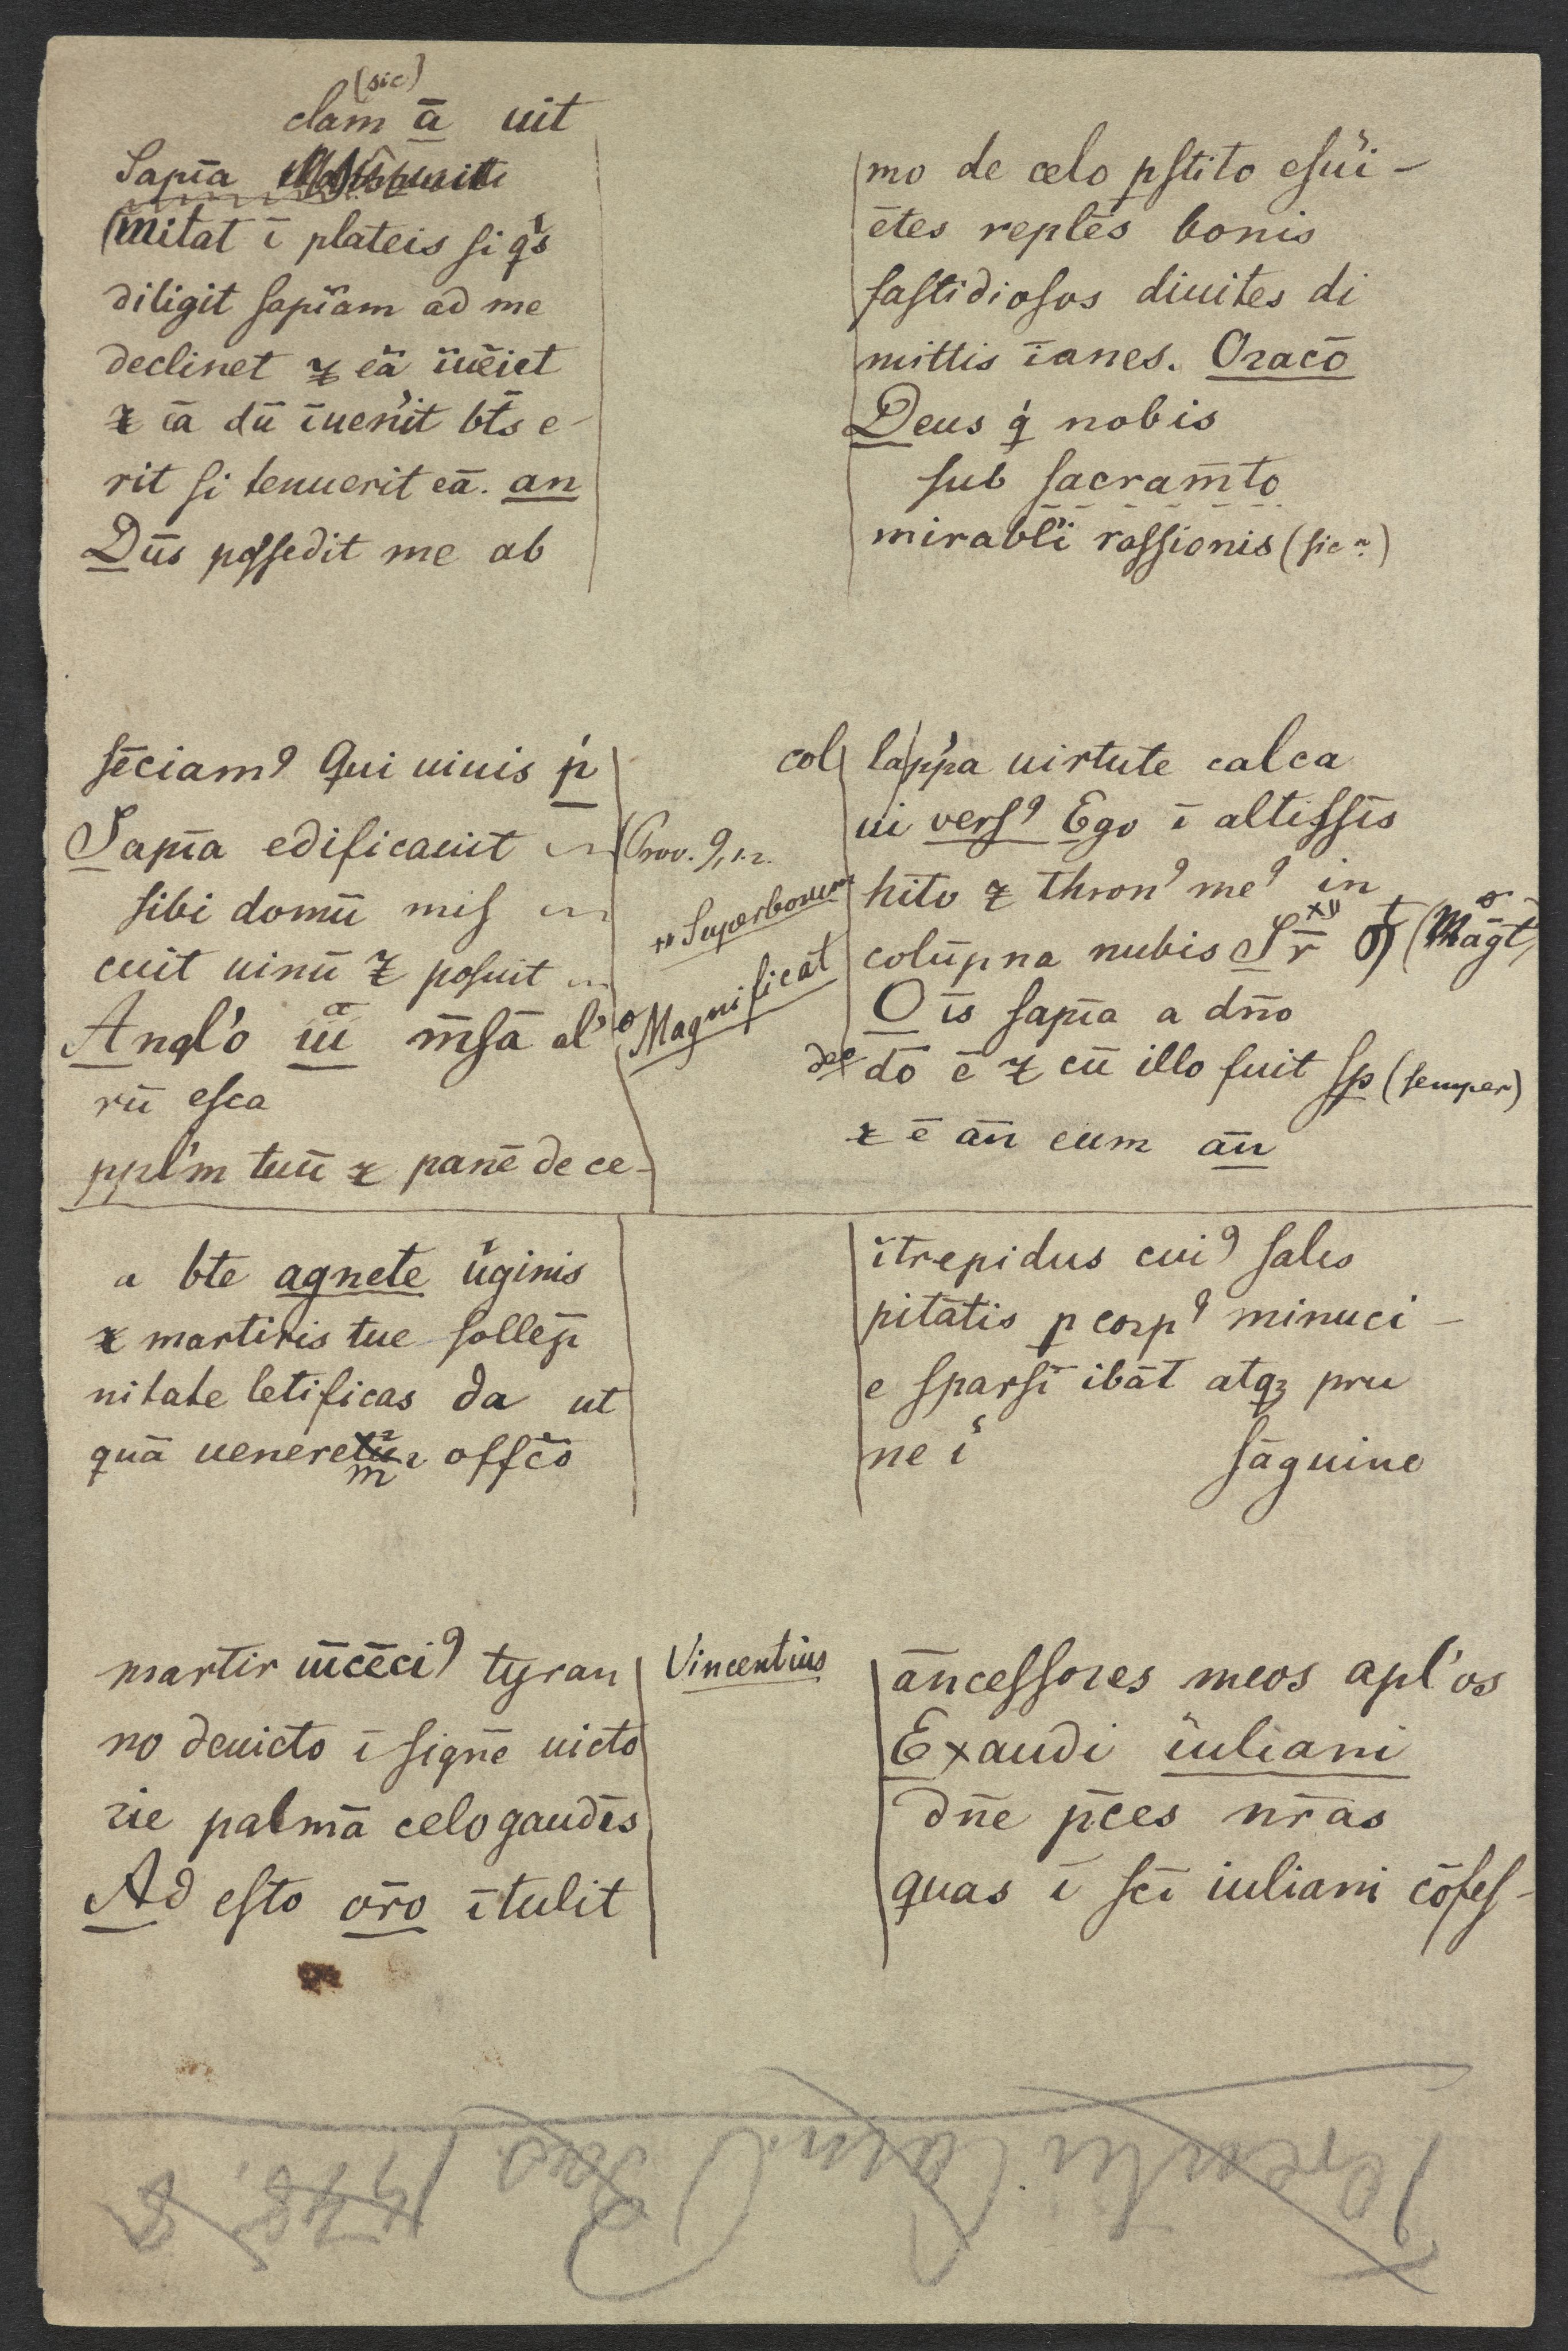 (sic)
clam ā uit
Sapīa
mitat ī plateis ſi qͥs
diligit ſapīam ad me
declinet ⁊ eā īuēiet
⁊ īa dū īuen̄it bt̄s e-
rit ſi tenuerit eā. an
Dn̄s poſſedit me ab
mo de celo pſtito eſuī-
ētes reples bonis
faſtidioſos diuites di
mittis īanes. Oracō
Deus qͥ nobis
ſub ſacram̄to
mirabl̄i raſſionis (ſic ~)
ſēciam⁹ Qui uiuis ṕ
Sapīa edificauit
ſibi domū miſ
cuit uinū ⁊ poſuit
Angl'o m̄ſā al'
rū eſca
ppl'm tuū ⁊ panē de ce-
Prov. 9, 1.2.
"Superborum
Magnificat
col lappa uirtute calca
ui verſ⁹ Ego ī altiſſīs
hito ⁊ thron⁹ me⁹ in
colūpna nubis (Māgt)
O īs ſapīa a dn̄o
deo dō ē ⁊ cū illo fuit ſp (ſemper)
⁊ ē ān eum ān
a bte agnete úginis
⁊ martiris tue ſollēp
nitate letificas da ut
quā ueneretū m offc̄o
ītrepidus cui⁹ ſales
pitātis p corp⁹ minuci-
e ſparſī ibāt atqꝫ pru
ne ī ſāguine
martir uīcēci⁹ tyran
no deuicto ī ſigne uicto
rie palmā celo gaudēs
Ad eſto or̄o ītulit
Vincentius
ānceſſores meos apl'os
Exaudi iuliani
dn̄e p̄ces nr̄as
quas ī ſcī iuliani cōfeſ-
Terentii 1478. 8